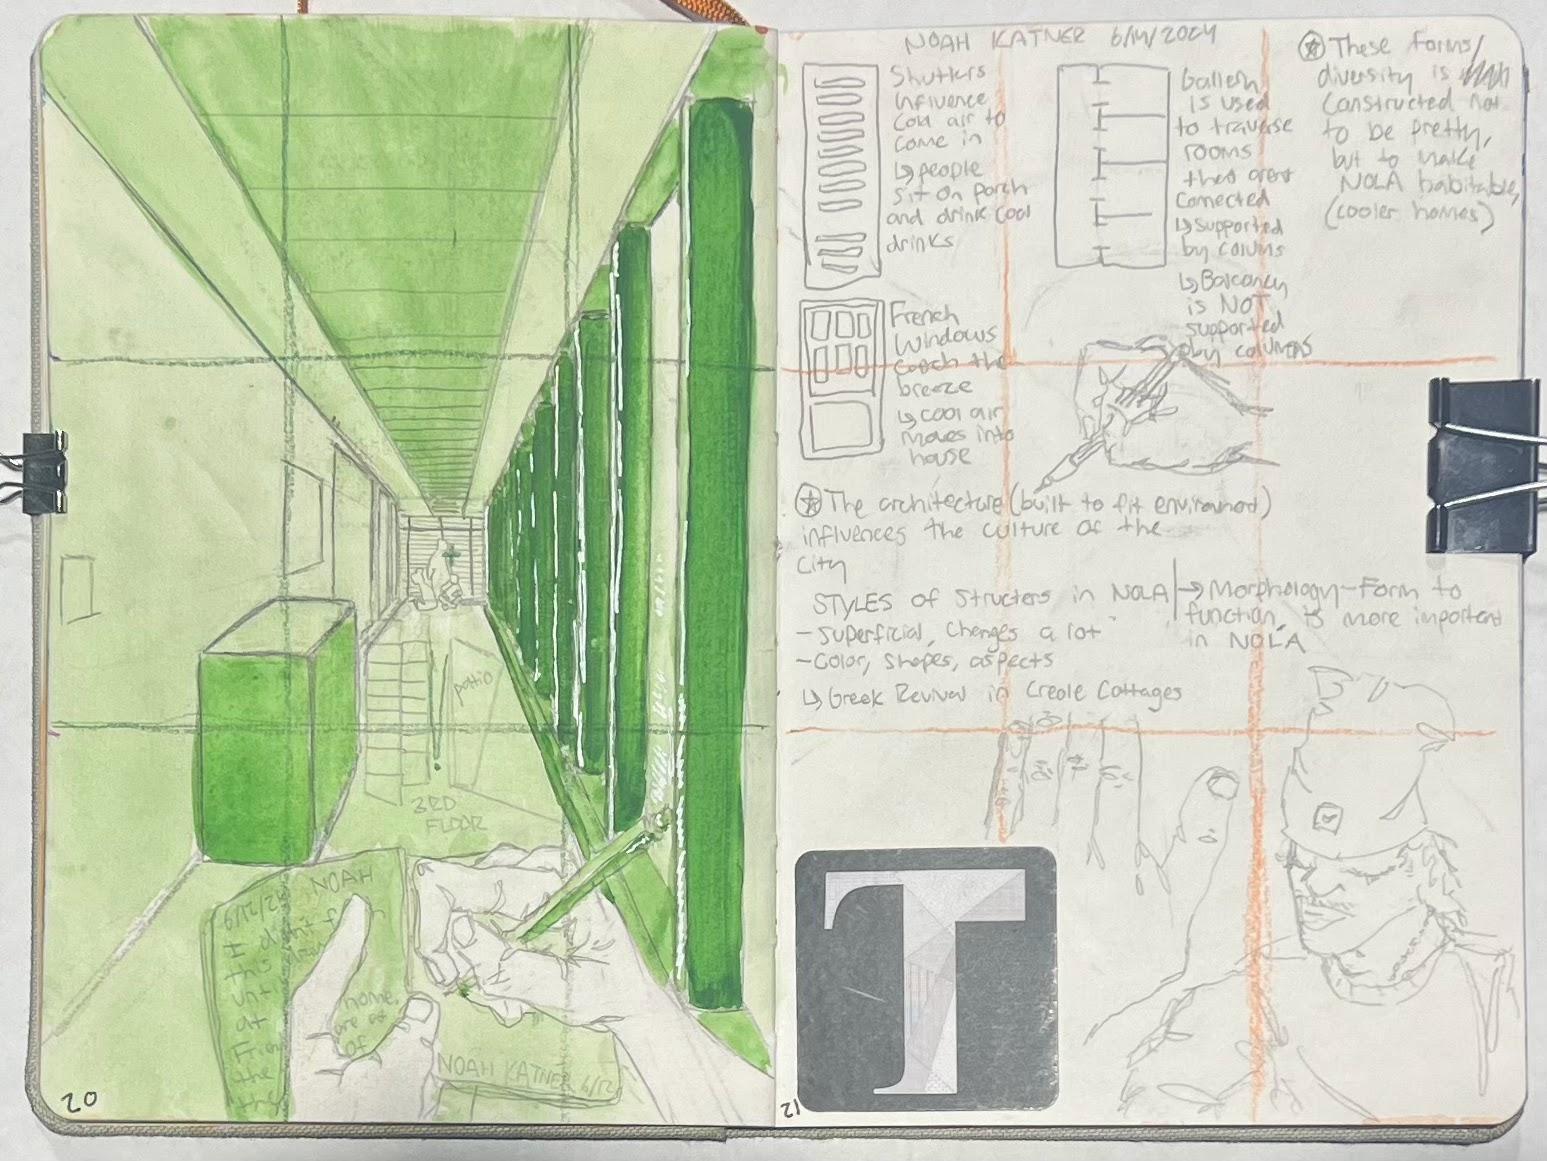 patio
3RD
FLOOR
6/12/2
NOAH
this
unti
at
home.
are
of
the
NOAH KATNER 6/12
20
NOAH KATNER 6/14/2024
Shutters
influence
cool air to
come in
↳ people
sit on porch
and drink cool
drinks
French
windows
catch the
breeze
↳ cool air
moves into
house
Gallery
is used
to traverse
rooms
that arent
connected
↳ supported
by colums
↳ Balcaney
is NOT
supported
by columns
These forms/
diversity is
constructed not
to be pretty,
but to make
NOLA habitable,
(cooler homes)
The architecture (built to fit enviroment)
influences the culture of the
city
STYLES of Structers in NOLA
- Superficial, Changes a lot
- Color, shapes, aspects
↳ Greek Revival in Creole Cottages
→ Morphology - Form to
function, is more important
in NOLA
T
21